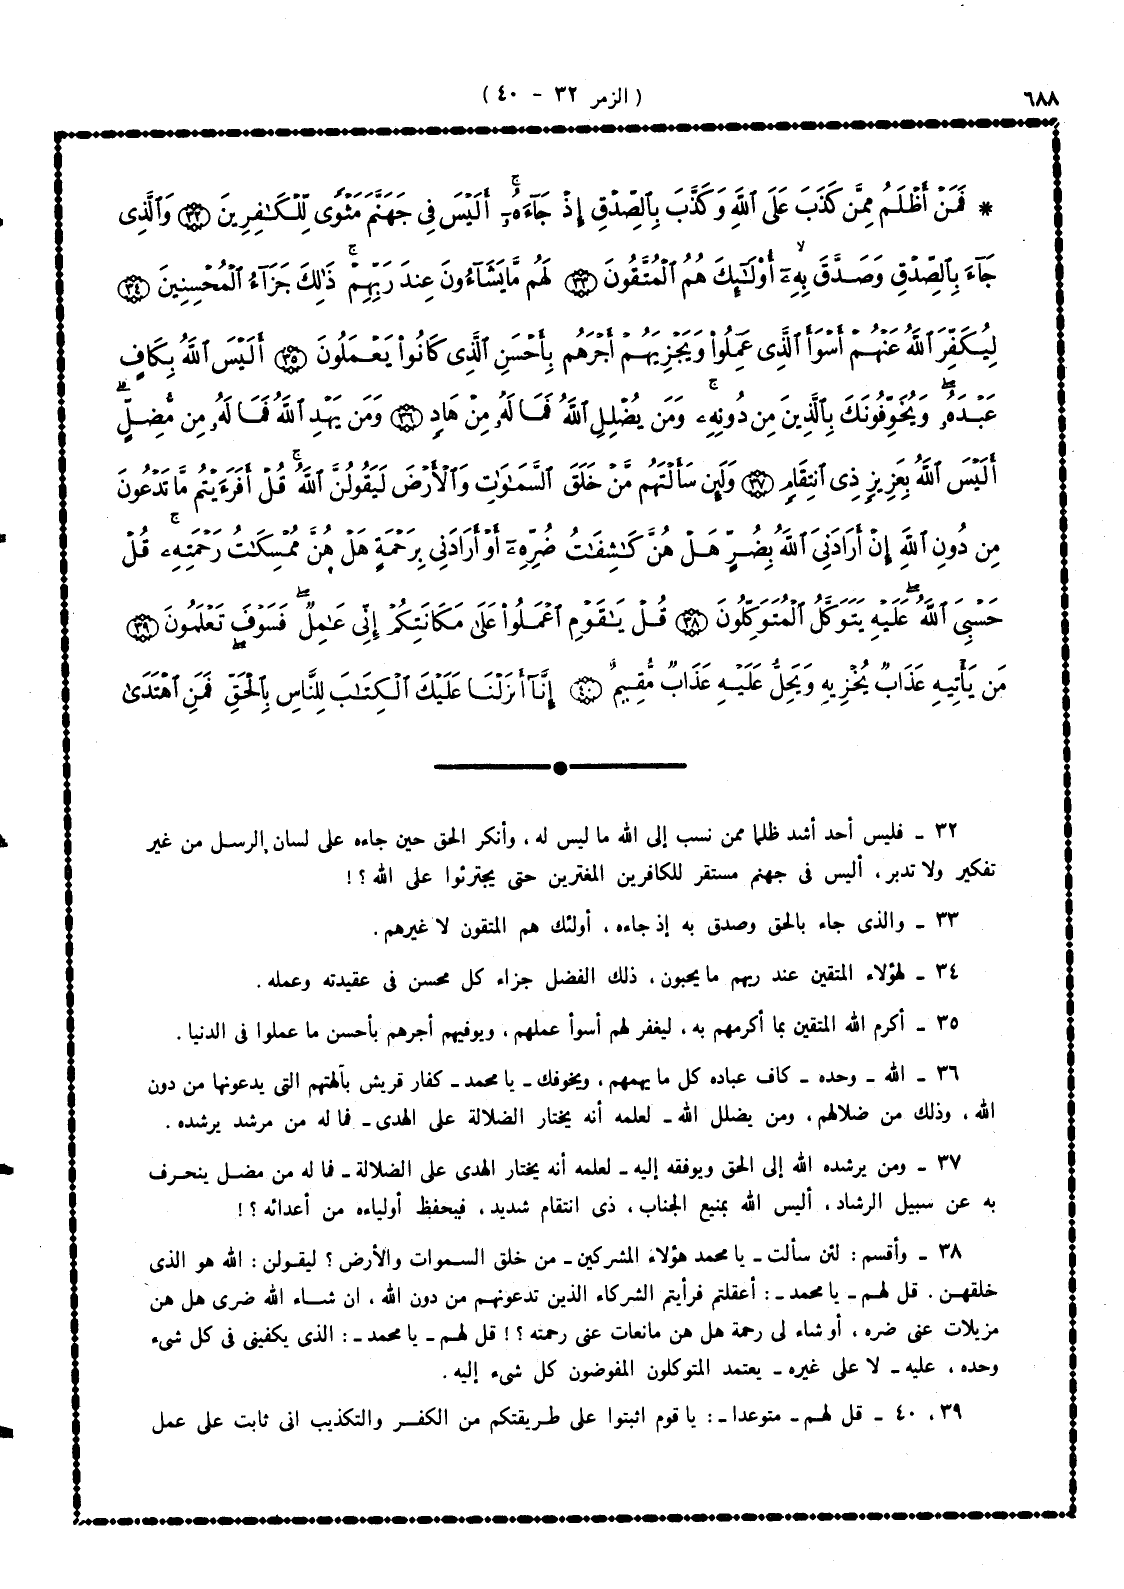 ٦٨٨
( الزمر ٣٢ - ٤٠ )
* فَمَنْ أَظْلَمُ مِمَّن كَذَبَ عَلَى اللَّهِ وَكَذَّبَ بِالصِّدْقِ إِذْ جَآءَهُۥٓ ۚ أَلَيْسَ فِى جَهَنَّمَ مَثْوًى لِّلْكَٰفِرِينَ ﴿٣٢﴾ وَالَّذِى
جَآءَ بِالصِّدْقِ وَصَدَّقَ بِهِۦٓ ۙ أُوْلَٰٓئِكَ هُمُ الْمُتَّقُونَ ﴿٣٣﴾ لَهُم مَّا يَشَآءُونَ عِندَ رَبِّهِمْ ۚ ذَٰلِكَ جَزَآءُ الْمُحْسِنِينَ ﴿٣٤﴾
لِيُكَفِّرَ اللَّهُ عَنْهُمْ أَسْوَأَ الَّذِى عَمِلُواْ وَيَجْزِيَهُمْ أَجْرَهُم بِأَحْسَنِ الَّذِى كَانُواْ يَعْمَلُونَ ﴿٣٥﴾ أَلَيْسَ اللَّهُ بِكَافٍ
عَبْدَهُۥ ۖ وَيُخَوِّفُونَكَ بِالَّذِينَ مِن دُونِهِۦ ۚ وَمَن يُضْلِلِ اللَّهُ فَمَا لَهُۥ مِنْ هَادٍ ﴿٣٦﴾ وَمَن يَهْدِ اللَّهُ فَمَا لَهُۥ مِن مُّضِلٍّ ۗ
أَلَيْسَ اللَّهُ بِعَزِيزٍ ذِى انتِقَامٍ ﴿٣٧﴾ وَلَئِن سَأَلْتَهُم مَّنْ خَلَقَ السَّمَٰوَٰتِ وَالْأَرْضَ لَيَقُولُنَّ اللَّهُ ۚ قُلْ أَفَرَءَيْتُم مَّا تَدْعُونَ
مِن دُونِ اللَّهِ إِنْ أَرَادَنِىَ اللَّهُ بِضُرٍّ هَلْ هُنَّ كَٰشِفَٰتُ ضُرِّهِۦٓ أَوْ أَرَادَنِى بِرَحْمَةٍ هَلْ هُنَّ مُمْسِكَٰتُ رَحْمَتِهِۦ ۚ قُلْ
حَسْبِىَ اللَّهُ ۖ عَلَيْهِ يَتَوَكَّلُ الْمُتَوَكِّلُونَ ﴿٣٨﴾ قُلْ يَٰقَوْمِ اعْمَلُواْ عَلَىٰ مَكَانَتِكُمْ إِنِّى عَٰمِلٌ ۖ فَسَوْفَ تَعْلَمُونَ ﴿٣٩﴾
مَن يَأْتِيهِ عَذَابٌ يُخْزِيهِ وَيَحِلُّ عَلَيْهِ عَذَابٌ مُّقِيمٌ ﴿٤٠﴾ إِنَّآ أَنزَلْنَا عَلَيْكَ الْكِتَٰبَ لِلنَّاسِ بِالْحَقِّ ۖ فَمَنِ اهْتَدَىٰ
٣٢ ـ فليس أحد أشد ظلما ممن نسب إلى الله ما ليس له ، وأنكر الحق حين جاءه على لسان الرسل من غير
تفكير ولا تدبر ، أليس فى جهنم مستقر للكافرين المغترين حتى يجترئوا على الله ؟ !
٣٣ ـ والذى جاء بالحق وصدق به إذ جاءه ، أولئك هم المتقون لا غيرهم .
٣٤ ـ لهؤلاء المتقين عند ربهم ما يحبون ، ذلك الفضل جزاء كل محسن فى عقيدته وعمله .
٣٥ ـ أكرم الله المتقين بما أكرمهم به ، ليغفر لهم أسوأ عملهم ، ويوفيهم أجرهم بأحسن ما عملوا فى الدنيا .
٣٦ ـ الله ـ وحده ـ كاف عباده كل ما يهمهم ، ويخوفك ـ يا محمد ـ كفار قريش بآلهتهم التى يدعونها من دون
الله ، وذلك من ضلالهم ، ومن يضلل الله ـ لعلمه أنه يختار الضلالة على الهدى ـ فما له من مرشد يرشده .
٣٧ ـ ومن يرشده الله إلى الحق ويوفقه إليه ـ لعلمه أنه يختار الهدى على الضلالة ـ فما له من مضل ينحرف
به عن سبيل الرشاد ، أليس الله بمنيع الجناب ، ذى انتقام شديد ، فيحفظ أولياءه من أعدائه ؟ !
٣٨ ـ وأقسم : لئن سألت ـ يا محمد هؤلاء المشركين ـ من خلق السموات والأرض ؟ ليقولن : الله هو الذى
خلقهن . قل لهم ـ يا محمد ـ : أعقلتم فرأيتم الشركاء الذين تدعونهم من دون الله ، ان شاء الله ضرى هل هن
مزيلات عنى ضره ، أو شاء لى رحمة هل هن مانعات عنى رحمته ؟ ! قل لهم ـ يا محمد ـ : الذى يكفينى فى كل شىء
وحده ، عليه ـ لا على غيره ـ يعتمد المتوكلون المفوضون كل شىء إليه .
٣٩ ، ٤٠ ـ قل لهم ـ متوعدا ـ : يا قوم اثبتوا على طريقتكم من الكفر والتكذيب انى ثابت على عمل